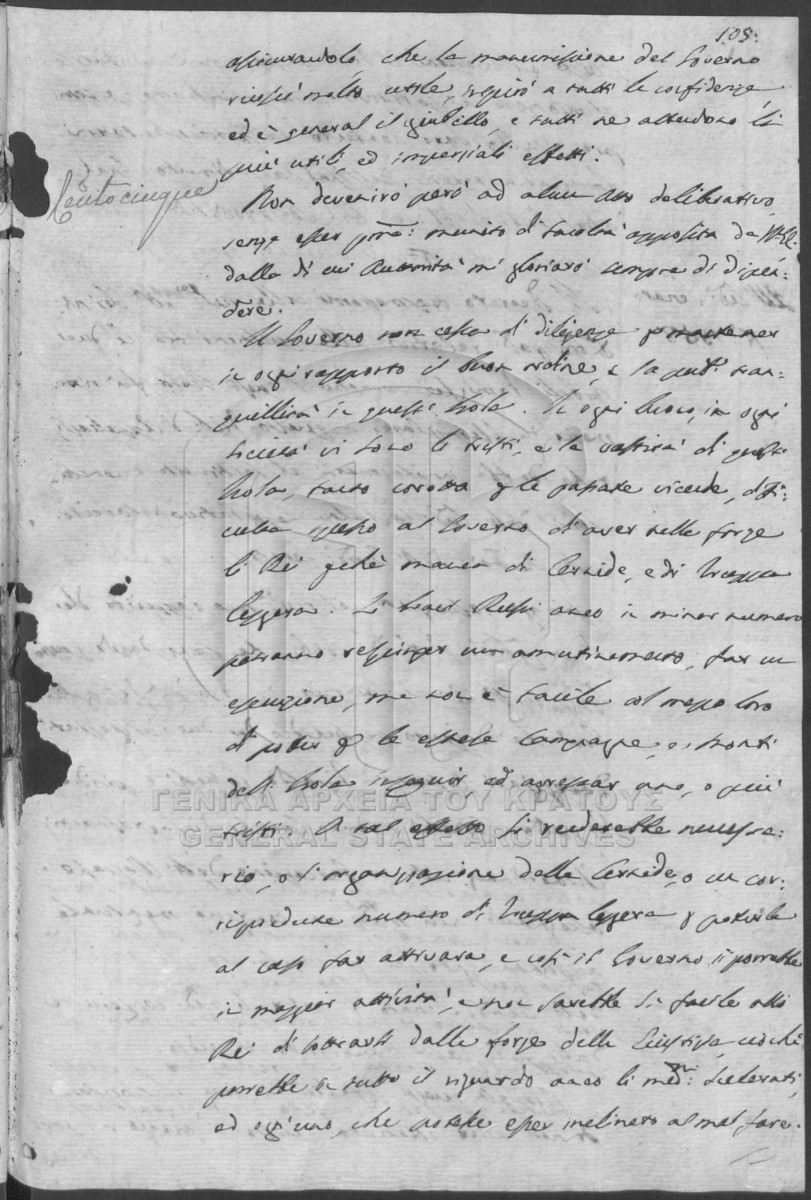 105.
assicurandolo che la manumissione del Governo
riuscì molto utile, inspirò a tutti la confidenza,
ed è general il giubillo, e tutti ne attendono li
più utili, ed imperziali effetti.
Centocinque
Non devenirò però ad alcun Atto deliberativo,
senza esser pma: munito di facoltà apposita da
dalla di cui Autorità mi gloriarò sempre di dipen-
dere.
Il Governo non cessa di diligenze mantener
in ogni rapporto il buon ordine, e la pub. tran-
quillità in quest' Isola. In ogni luoco, in ogni
società vi sono li tristi, e la vastità di questa
Isola, tanto corrotta le passate vicende, diffi-
culta spesso al Governo d'aver nelle forze
li Rei perchè manca di Cernide, e di Truppa
leggera. Li bravi Russi anco in minor numero
potranno respinger un amutinamento, far un
esecuzione, ma non è facile col mezzo loro
di poter le estese Campagne, e monti
dell'Isola inseguir ed arrestar uno, o più
tristi. A tal effetto si renderebbe necessa-
rio, o l'organizazione delle Cernide, o un cor-
rispondente numero di Truppa leggera poterle
al caso far attivare, e così il Governo si porrebbe
in maggior attività, e non sarebbe sì facile alli
Rei di sottrarsi dalle forze della Giustizia, nochè
porrebbe in tutto il riguardo anco li medmi: Scelerati,
ed ogn'uno, che potesse esser inclinato al mal fare.
ΓΕΝΙΚΑ ΑΡΧΕΙΑ ΤΟΥ ΚΡΑΤΟΥΣ
GENERAL STATE ARCHIVES